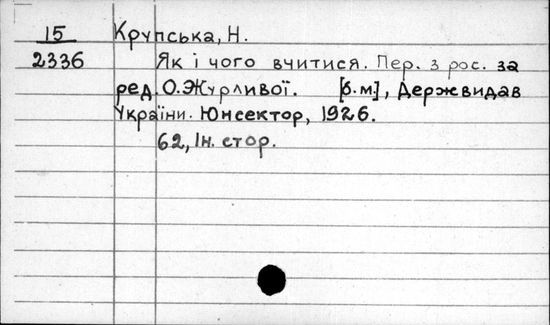 15 Крупська, Н.
2336 Як і чого вчитися. Пер. з рос. за
ред. О. Журливої. [б.м.], Держвидав
України. Юнсектор, 1926.
62, Ін. стор.